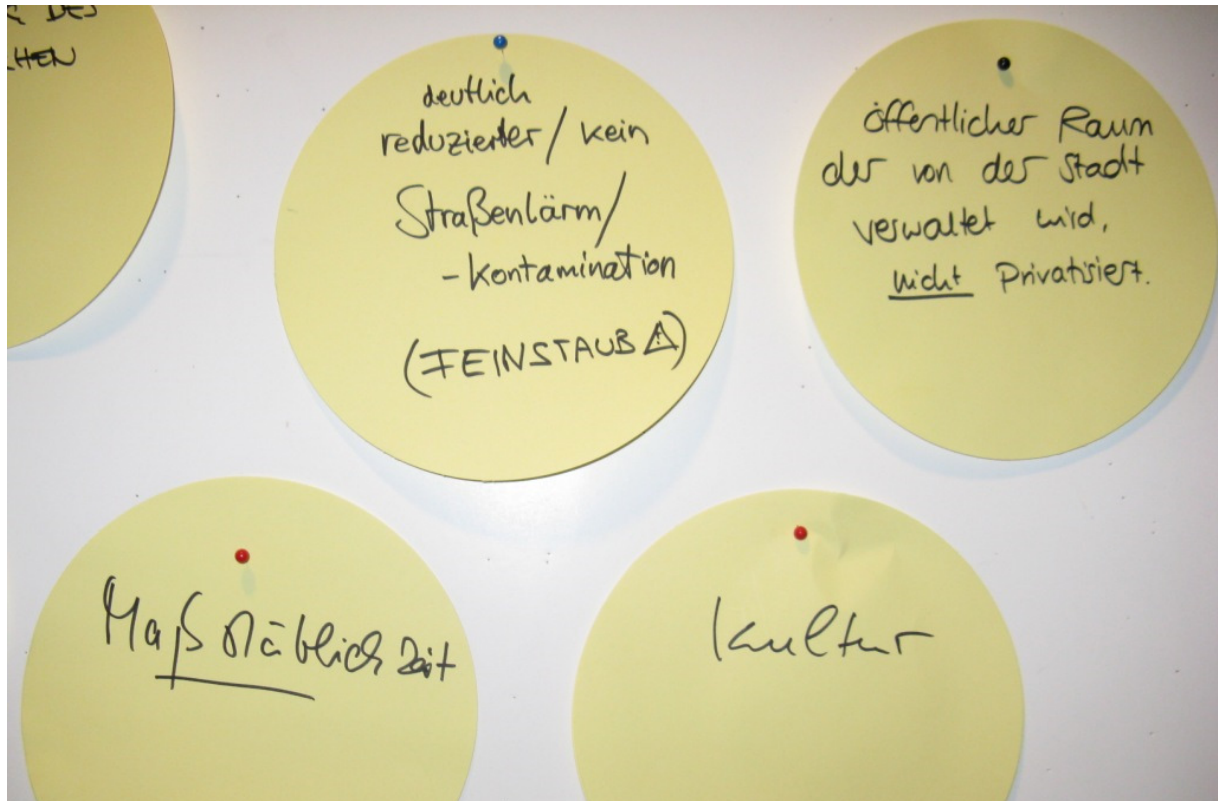 DES
deutlich
reduzierter / kein
Straßenlärm/
-kontamination
(FEINSTAUB ⚠)
öffentlicher Raum
der von der Stadt
verwaltet wird,
nicht privatisiert.
Maßstäblichkeit
Kultur